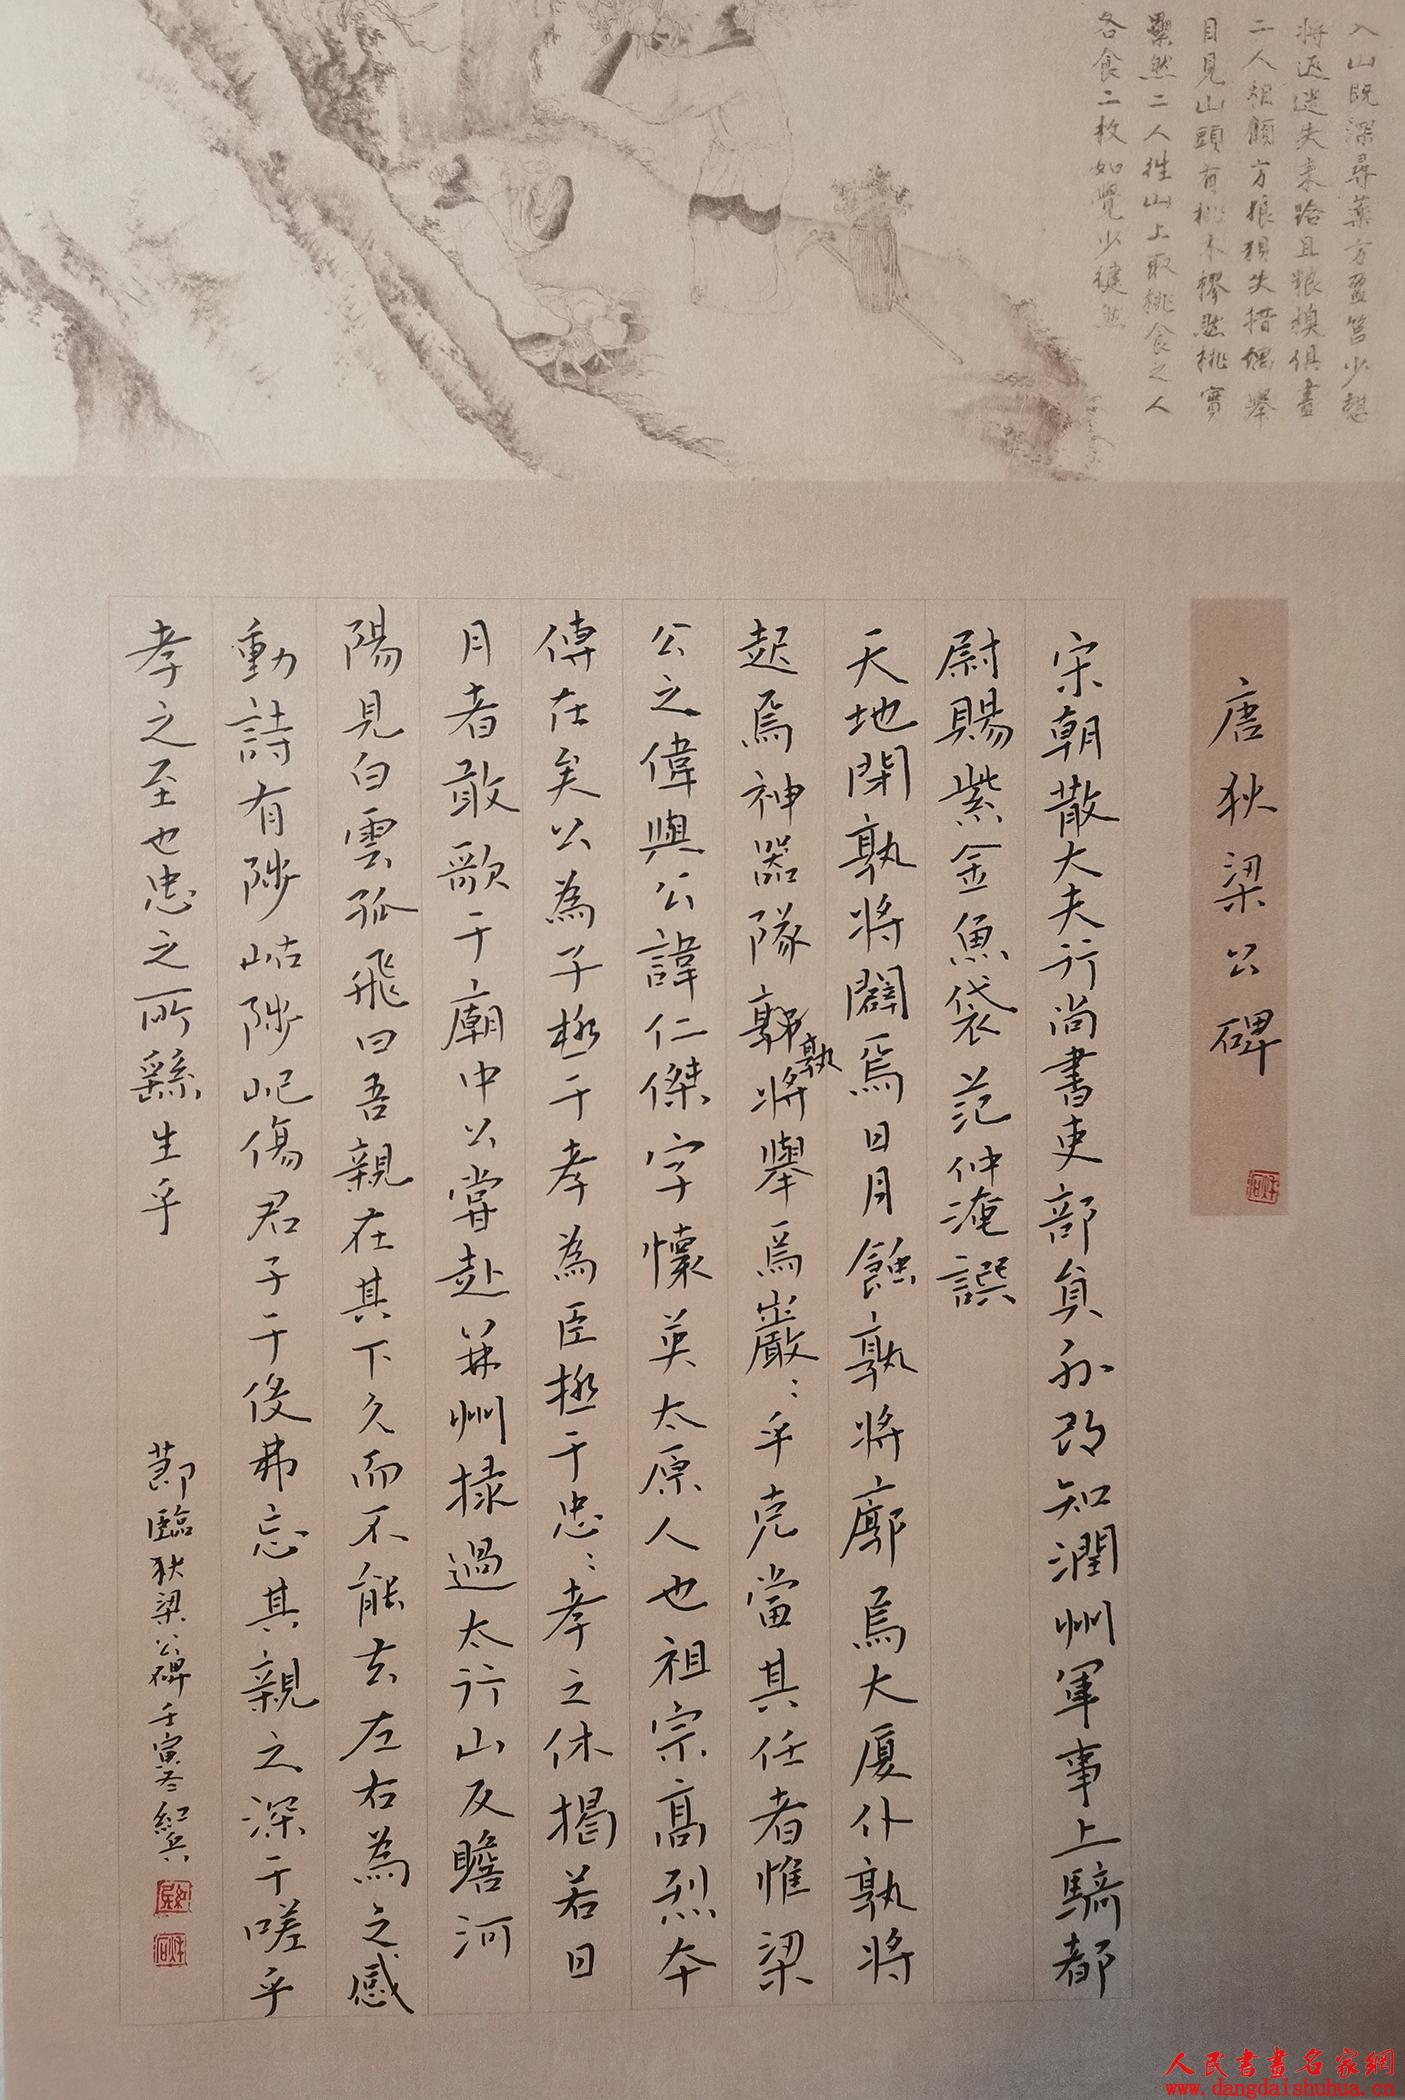 入山既深尋藥方盈筥少憩
將返迷失來路且粮糗俱盡
二人相顧方狼狽失措偶舉
目見山頭有桃木樛然桃實
纍然二人徃山上取桃食之人
各食二枚如覺少健然
唐狄梁公碑
宋朝散大夫行尚書吏部員外郎知潤州軍事上騎都
尉賜紫金魚袋范仲淹譔
天地閉孰將闢焉日月蝕孰將廓焉大厦仆孰將
起焉神器隊孰將舉焉巖:乎克當其任者惟梁
公之偉與公諱仁傑字懷英太原人也祖宗高烈本
傳在矣公為子極于孝為臣極于忠:孝之休揭若日
月者敢歌于廟中公嘗赴并州掾過太行山反瞻河
陽見白雲孤飛曰吾親在其下久而不能去左右為之感
動詩有陟岵陟屺傷君子于役弗忘其親之深于嗟乎
孝之至也忠之所繇生乎
節臨狄梁公碑壬寅冬紅兵
人民書畫名家網
www.dangdaishuhua.cn